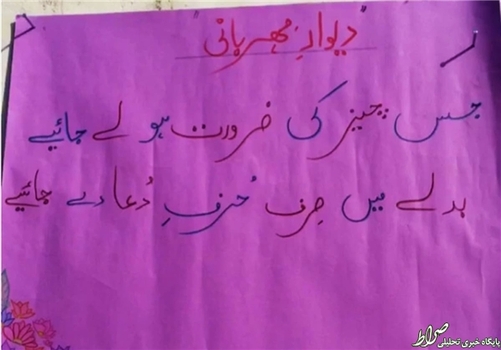 "دیوارِ مہربانی"
جس چیز کی ضرورت ہو لے جائیے
بدلے میں صرف حرفِ دُعا دے جائیے
صراط
پایگاه خبری تحلیلی